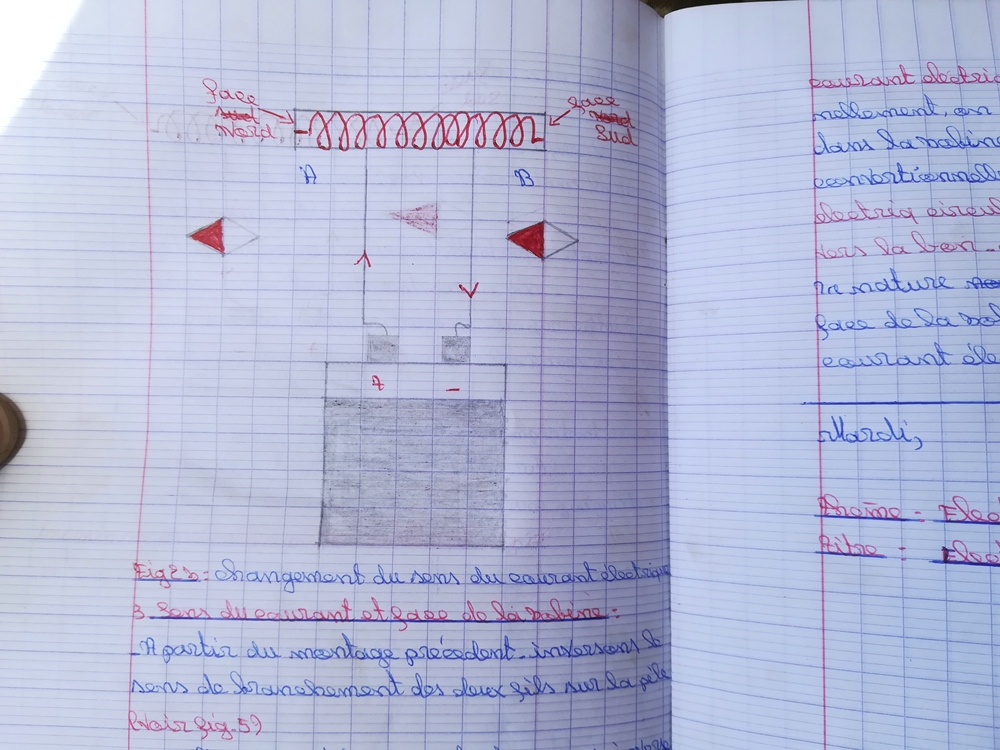 face
sud
Nord
face
Nord
Sud
A
B
+
-
Changement du sens du courant électrique
3. Sens du courant et face de la bobine :
- A partir du montage précédent inversons le
sens de branchement des deux fils sur la pile
(Voir fig. 5)
courant électri
nellement, on
dans la bobine
conventionnell
électriq circul
vers la bor
la nature
face de la bo
courant éle
Mardi,
Thème = Elec
Titre = Elec